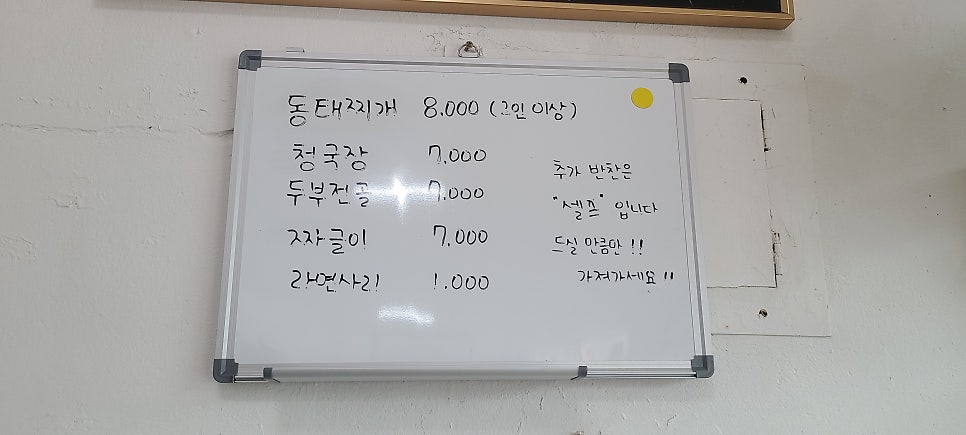 동태찌개 8.000 (2인 이상)
청국장 7.000
두부전골 7.000
짜글이 7.000
라면사리 1.000
추가 반찬은
"셀프" 입니다
드실 만큼만 !!
가져가세요 !!